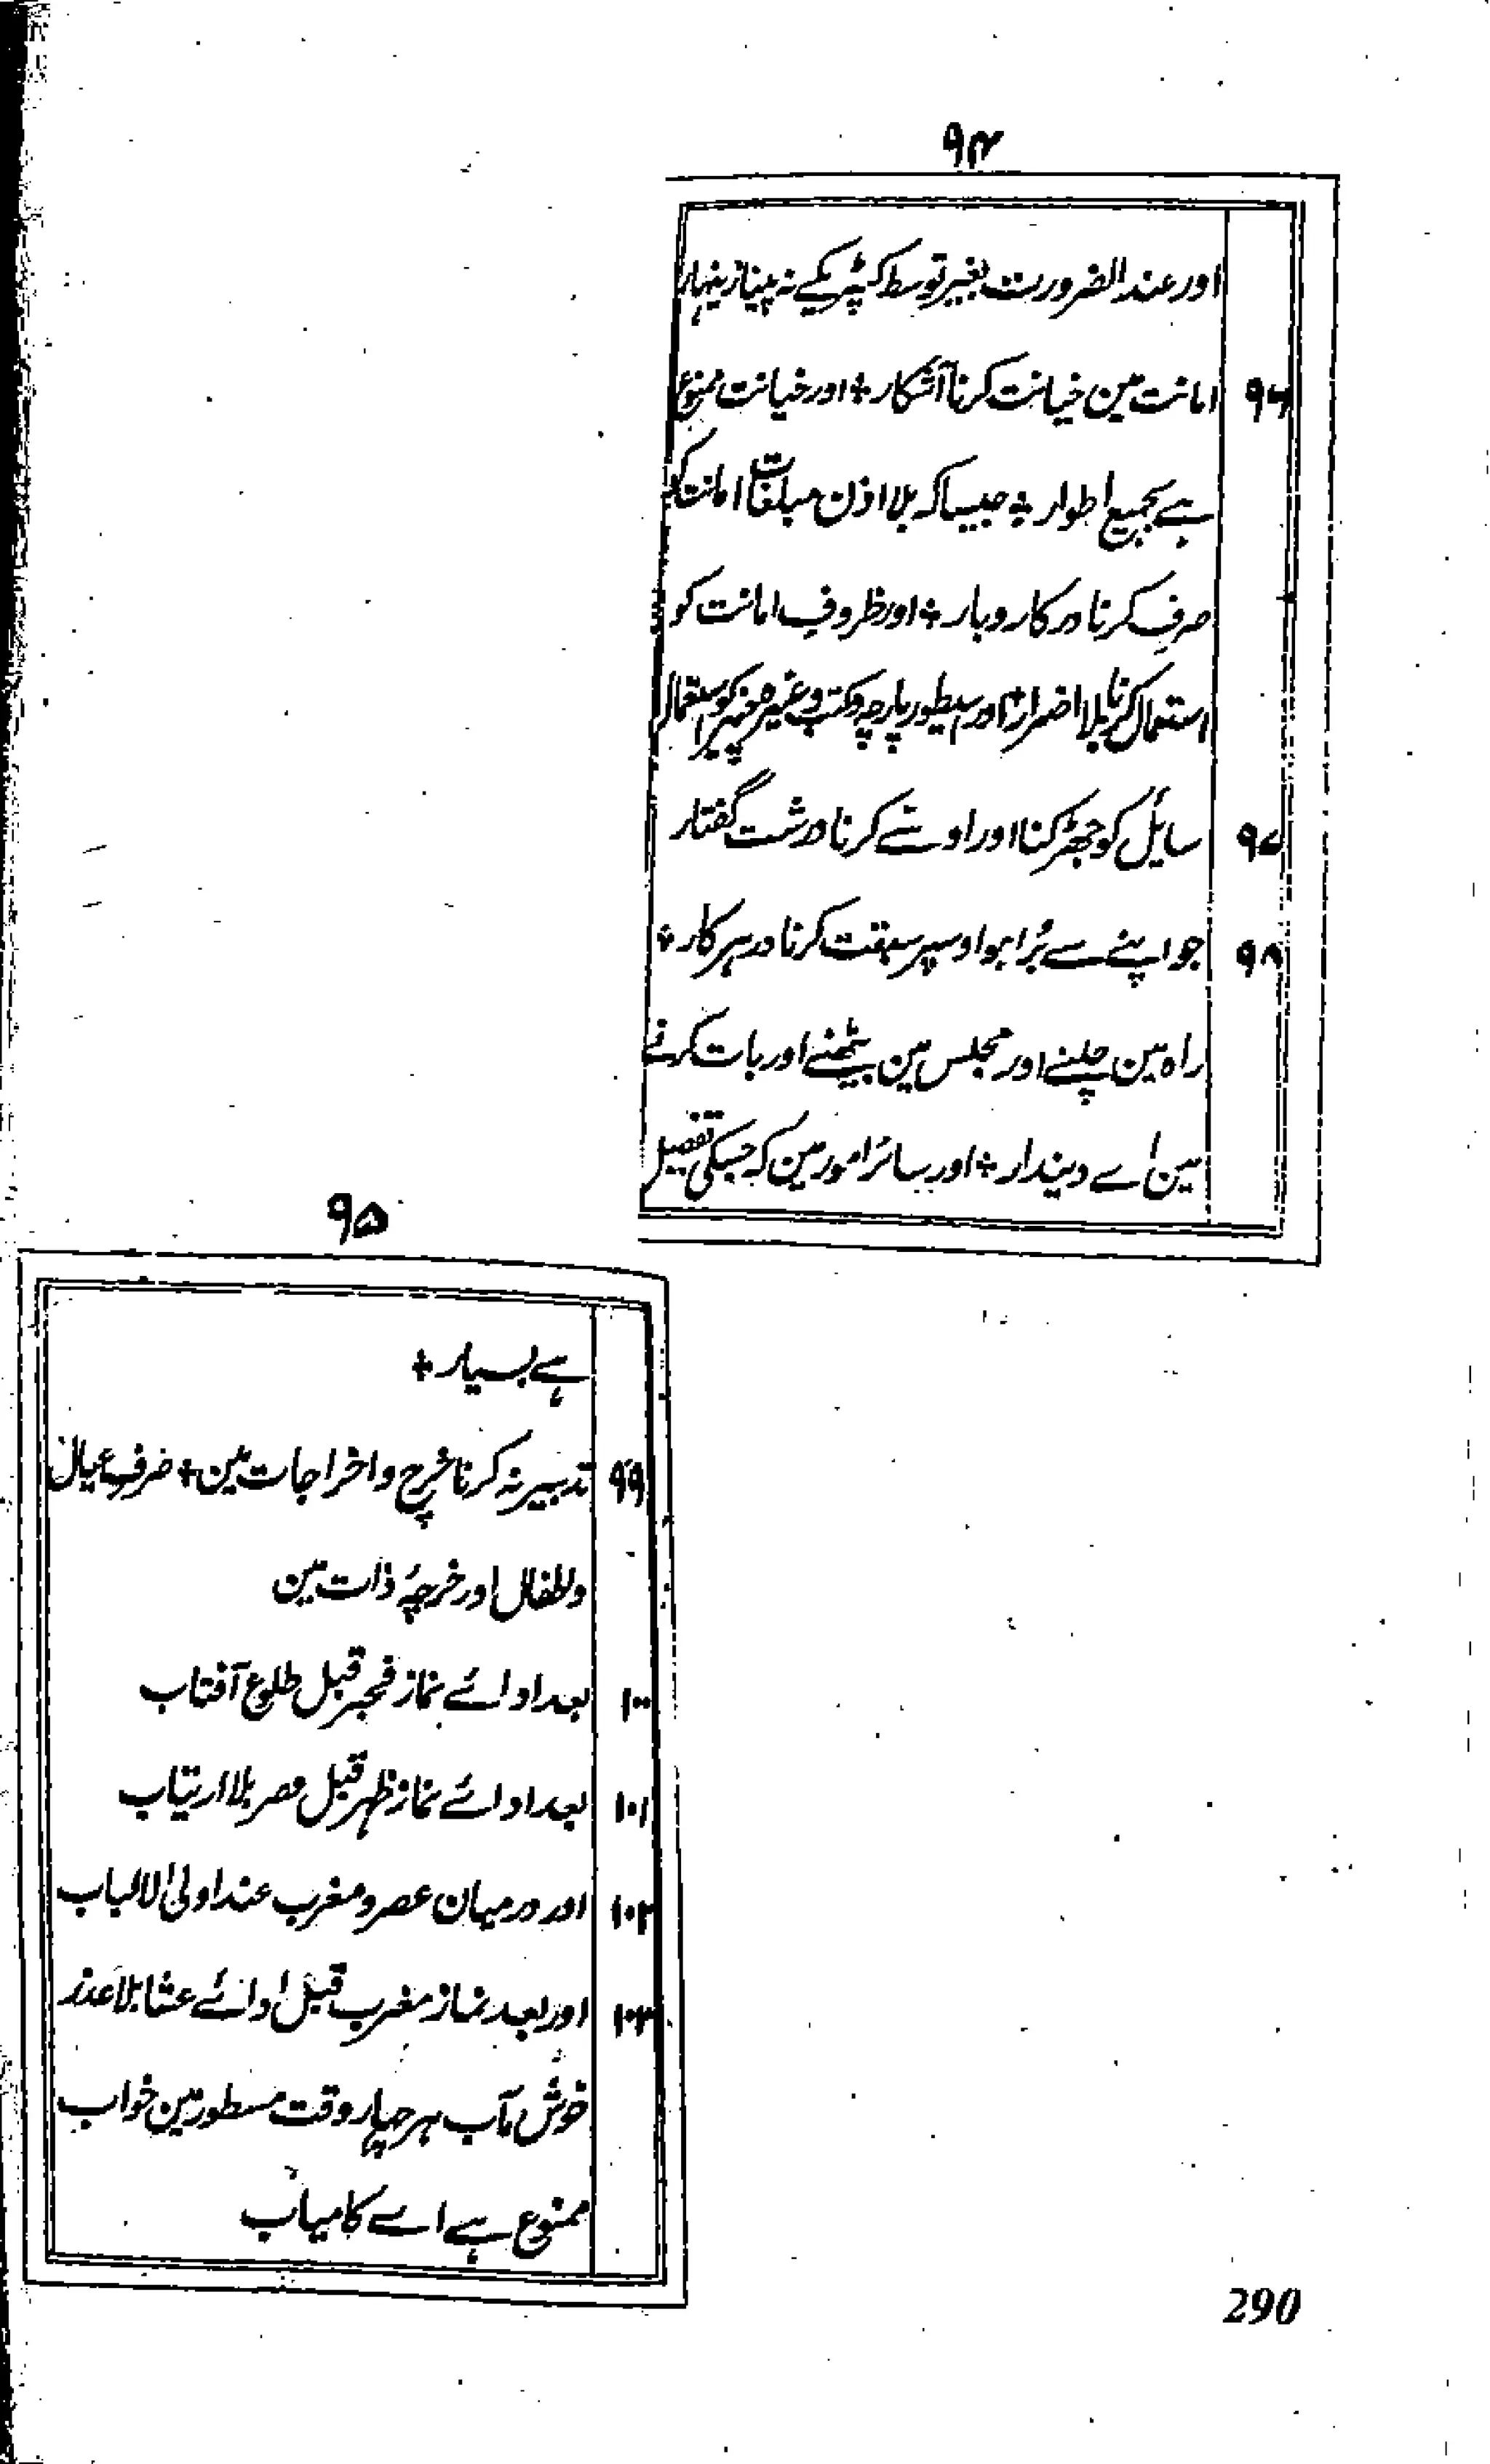 ۹۴
اور عند الضرورت بغیر توسط کپڑیکے نہ پہناز ینہار
۹۶ امانت مین خیانت کرنا آشکار + اور خیانت ممنوع
ہے بجمیع اطوار + جیساکہ بلا اذن مبلغات امانت کو
صرف کرنا در کاروبار + اور ظروف امانت کو
استعمال کرنا بلا اضرار + اور سیطور پارچہ و کتب وغیرہ چیز کو استعمال
۹۷ سایل کو جھڑکنا اور اوسے کرنا درشت گفتار
۹۸ جو اپنے سے بُرا ہو اوسپر سبقت کرنا در ہر کار +
راہ مین چلنے اور مجلس مین بیٹھنے اور بات کرنے
مین اے دیندار + اور سائر امور مین کہ جسکی تفصیل
۹۵
ہے بسیار +
۹۹ تدبیر نہ کرنا خرچ و اخراجات مین + صرف عیال
واطفال اور خرچۂ ذات مین
۱۰۰ بعد ادائے نماز فجر قبل طلوع آفتاب
۱۰۱ بعد ادائے نماز ظہر قبل عصر بلا ارتیاب
۱۰۲ اور درمیان عصر و مغرب عند اولی الالباب
۱۰۳ اور بعد نماز مغرب قبل ادائے عشا بلا عذر
خوش مآب ہر چہار وقت مسطور مین خواب
ممنوع ہے اے کامیاب
290